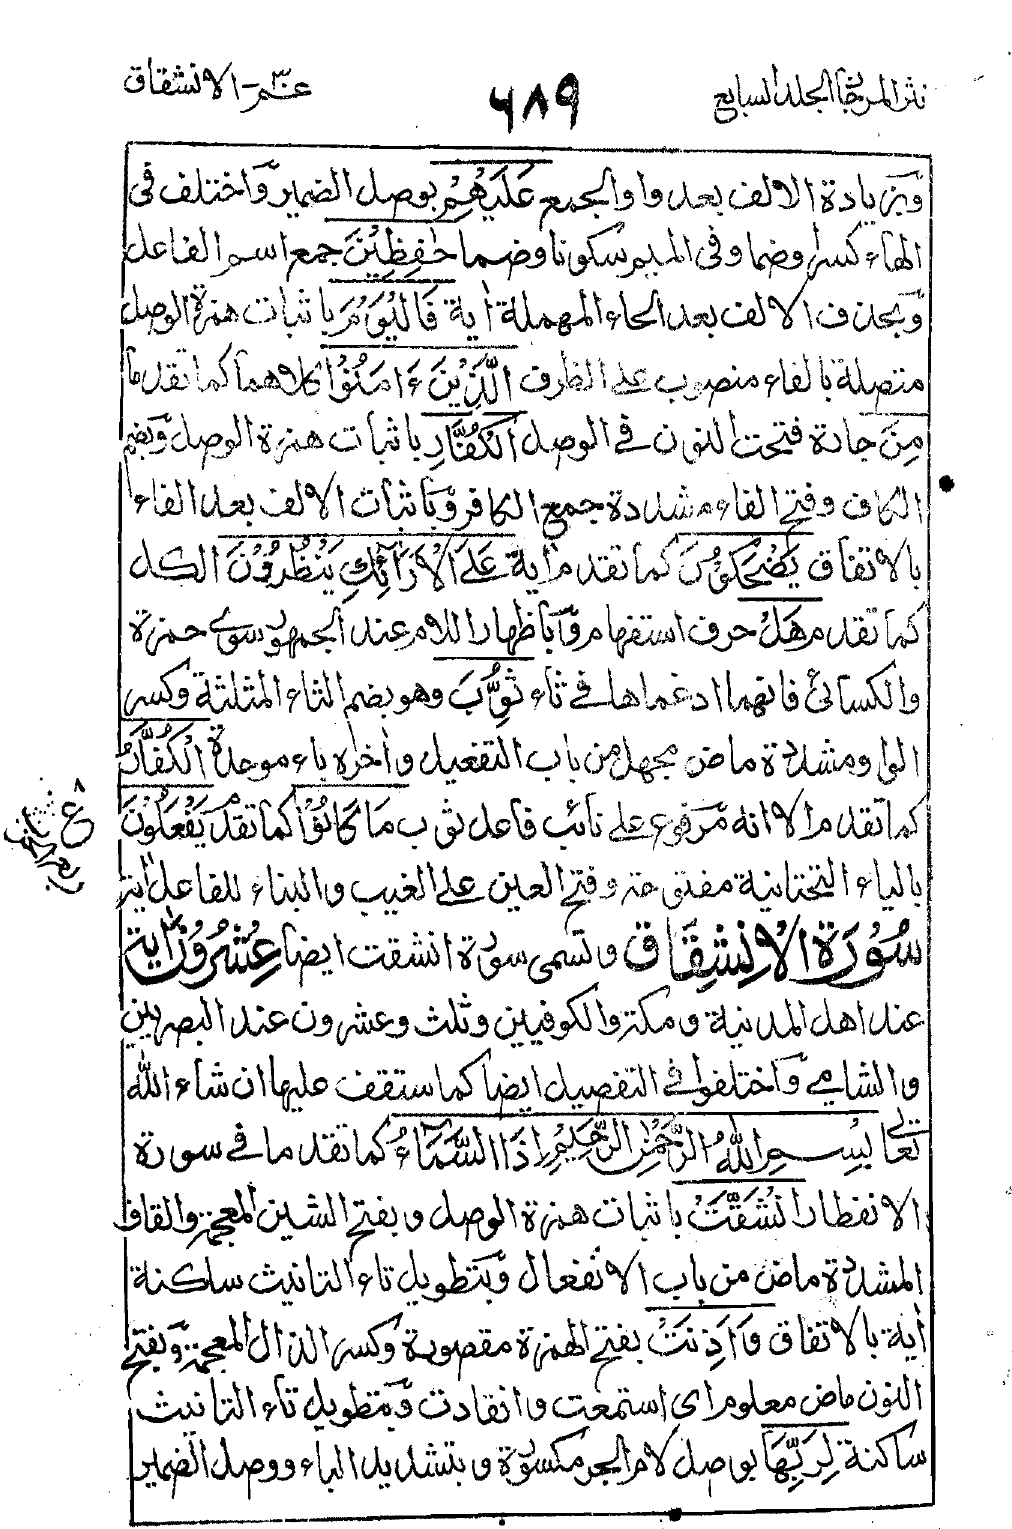 نثر المرجان المجلد السابع
٦٨٩
عم۳۰ - الانشقاق
وبزيادة الالف بعد واو الجمع عَلَيْهِمْ بوصل الضمير واختلف فى
الهاء كسرا وضما وفى الميم سكونا وضما حٰفِظِيْنَ جمع اسم الفاعل
وبحذف الالف بعد الحاء المهملة اٰية فَالْيَوْمَ باثبات همزة الوصل
متصلة بالفاء منصوب على الظرف الَّذِيْنَ ءَامَنُوْا كلاهما كما تقدما
مِنَ جارة فتحت النون فى الوصل الْكُفَّارِ باثبات همزة الوصل وبضم
الكاف وفتح الفاء مشددة جمع الكافر وباثبات الالف بعد الفاء
بالاتفاق يَضْحَكُوْنَ كما تقدم اٰية عَلَى الْاَرَآئِكِ يَنْظُرُوْنَ الكل
كما تقدم هَلْ حرف استفهام وباظهار اللام عند الجمهور سوى حمزة
والكسائى فانهما ادغماها فى ثاء ثُوِّبَ وهو بضم الثاء المثلثة وكسر
الواو مشددة ماض مجهل من باب التفعيل واٰخره باء موحدة الْكُفَّارُ
كما تقدم الا انه مرفوع على نائب فاعل ثوب مَا كَانُوْا كما تقدم يَفْعَلُوْنَ
بالياء التحتانية مفتوحة وفتح العين على الغيب والبناء للفاعل اٰية
سُوْرَةُ الْاِنْشِقَاقِ وتسمى سورة انشقت ايضا عِشْرُوْنَ اٰية
عند اهل المدينة ومكة والكوفيين وثلث وعشرون عند البصريين
والشامى واختلفوا فى التفصيل ايضا كما ستقف عليها ان شاء الله
تعالى بِسْمِ اللهِ الرَّحْمٰنِ الرَّحِيْمِ اِذَا السَّمَآءُ كما تقدما فى سورة
الانفطار انْشَقَّتْ باثبات همزة الوصل وبفتح الشين المعجمة والقاف
المشددة ماض من باب الانفعال وبتطويل تاء التانيث ساكنة
اٰية بالاتفاق وَاَذِنَتْ بفتح الهمزة مقصورة وكسر الذال المعجمة وبفتح
النون ماض معلوم اى استمعت وانقادت وبتطويل تاء التانيث
ساكنة لِرَبِّهَا بوصل لام الجر مكسورة وبتشديد الباء ووصل الضمير